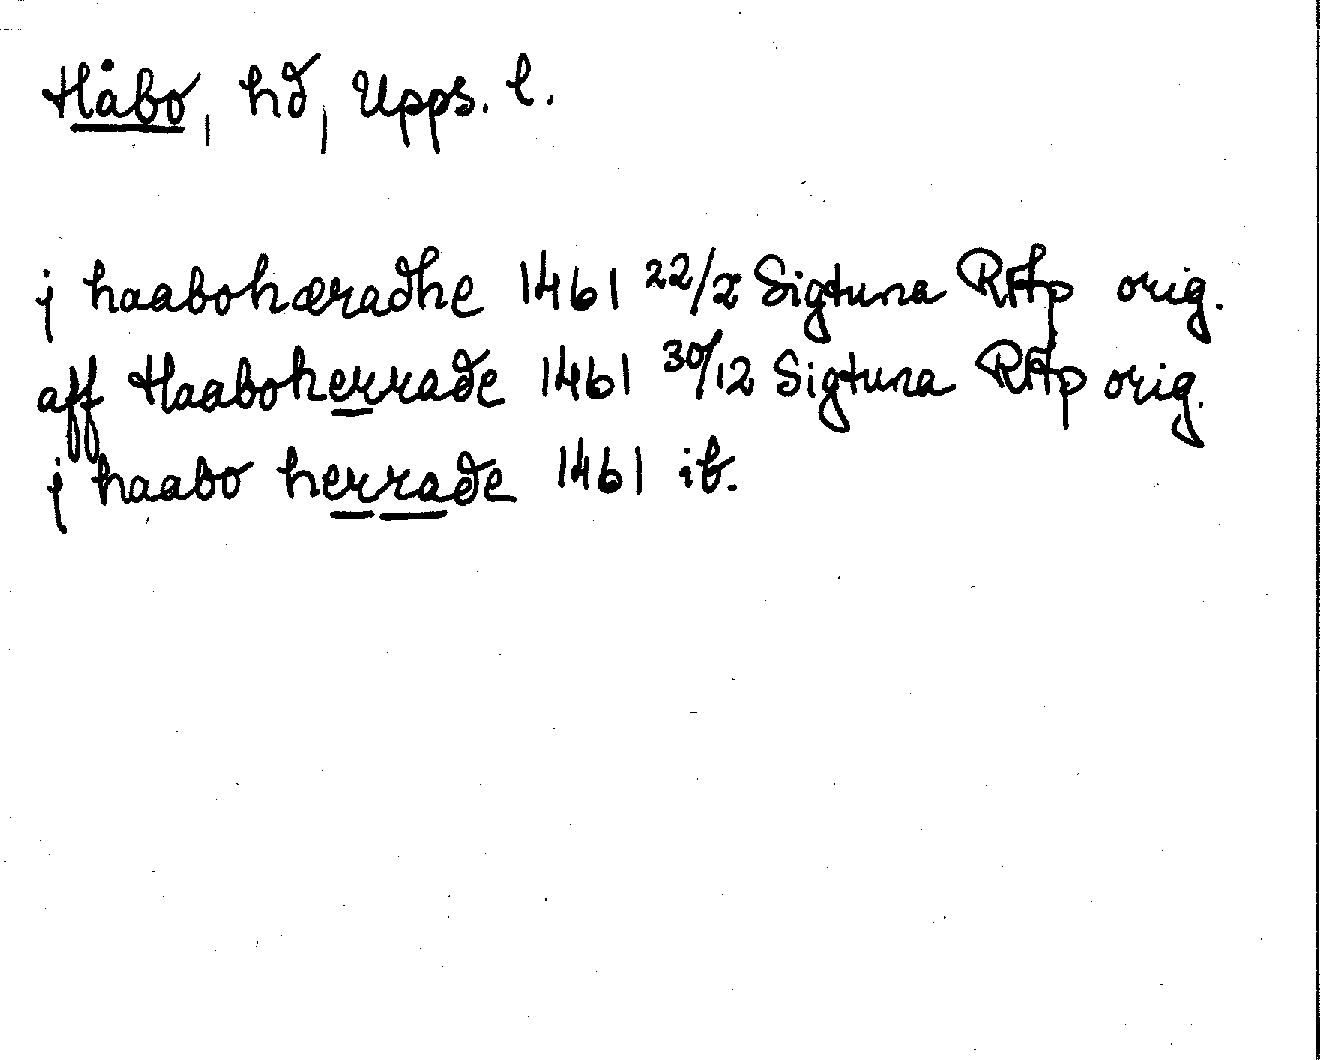 Håbo, hd, Upps. l.
j haabohæradhe 1461 22/2 Sigtuna RAp orig.
aff Haaboherrade 1461 30/12 Sigtuna RAp orig.
j haabo herrade 1461 ib.